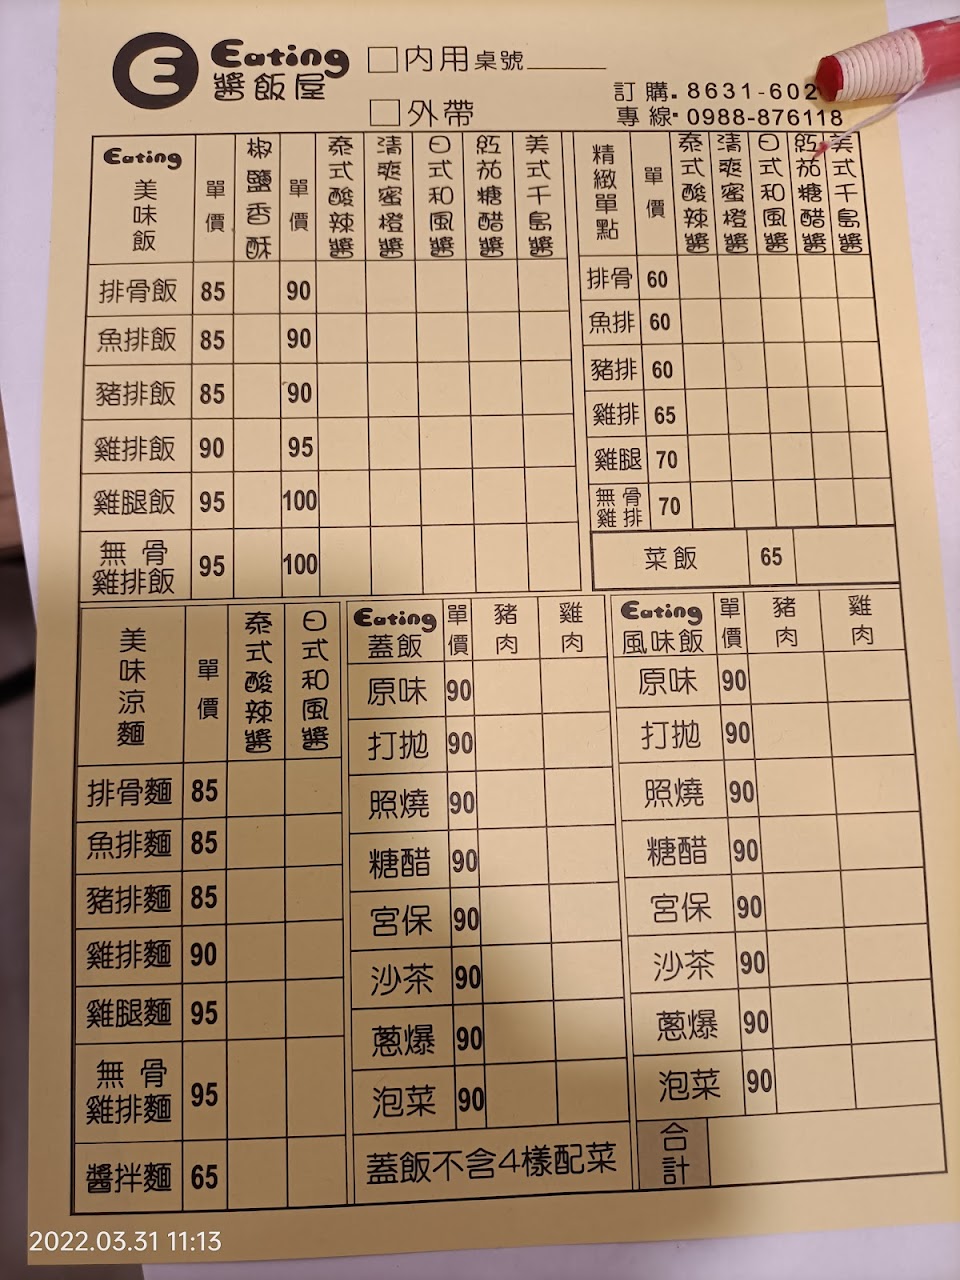 Eating
醬飯屋
□內用桌號______
□外帶
訂購：8631-602
專線：0988-876118
Eating 美味飯 單價 椒鹽香酥 單價 泰式酸辣醬 清爽蜜橙醬 日式和風醬 紅茄糖醋醬 美式千島醬
排骨飯 85 90
魚排飯 85 90
豬排飯 85 90
雞排飯 90 95
雞腿飯 95 100
無骨雞排飯 95 100
精緻單點 單價 泰式酸辣醬 清爽蜜橙醬 日式和風醬 紅茄糖醋醬 美式千島醬
排骨 60
魚排 60
豬排 60
雞排 65
雞腿 70
無骨雞排 70
菜飯 65
美味涼麵 單價 泰式酸辣醬 日式和風醬
排骨麵 85
魚排麵 85
豬排麵 85
雞排麵 90
雞腿麵 95
無骨雞排麵 95
醬拌麵 65
Eating 蓋飯 單價 豬肉 雞肉
原味 90
打拋 90
照燒 90
糖醋 90
宮保 90
沙茶 90
蔥爆 90
泡菜 90
蓋飯不含4樣配菜
Eating 風味飯 單價 豬肉 雞肉
原味 90
打拋 90
照燒 90
糖醋 90
宮保 90
沙茶 90
蔥爆 90
泡菜 90
合計
2022.03.31 11:13